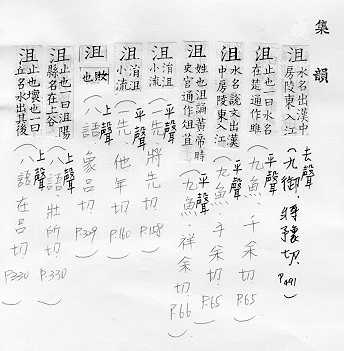 集韻
沮 水名出漢中房陵東入江
去聲(九御.將豫切.P.491)
沮 止也一曰水名在楚通作雎
平聲(九魚.千余切.P.65)
沮 水名說文出漢中房陵東入江
平聲(九魚.子余切.P.65)
沮 姓也沮誦黃帝時史官通作伹苴
平聲(九魚.祥余切.P.66)
沮 涓沮小流
平聲(一先.將先切.P.158)
沮 涓沮小流
平聲(一先.他年切.P.160)
沮 敗也
上聲(八語.象呂切.P.329)
沮 止也一曰沮陽縣名在上谷
上聲(八語.壯所切.P.330)
沮 止也壞也一曰丘名水出其後
上聲(八語.在呂切.P.330)